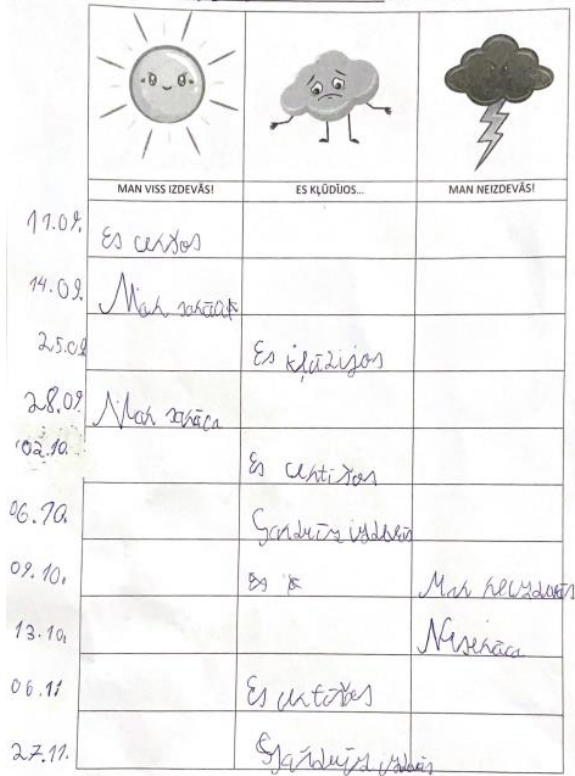 MAN VISS IZDEVĀS! ES KĻŪDĪJOS... MAN NEIZDEVĀS!
11.09. Es centos
14.09. Man sanāca
25.09 Es kļūdijos
28.09. Man sanāca
02.10. Es centitos
06.10. izdevās
09.10. Es Man neizdevās
13.10. Nesenāca
06.11 Es
27.11.